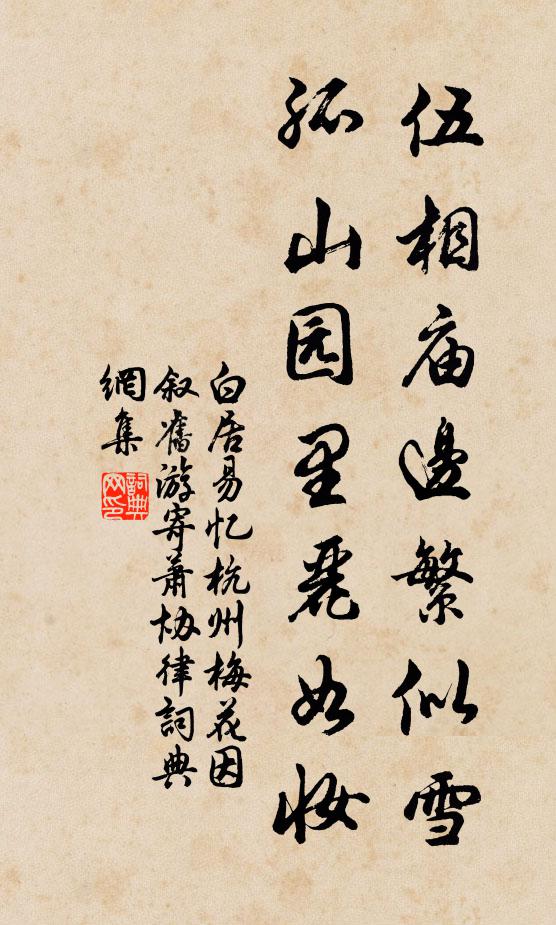 伍相庙邊繁似雪
孤山园里麗如妆
白居易忆杭州梅花因
叙舊游寄蕭协律詞典
網集
詞典
网印